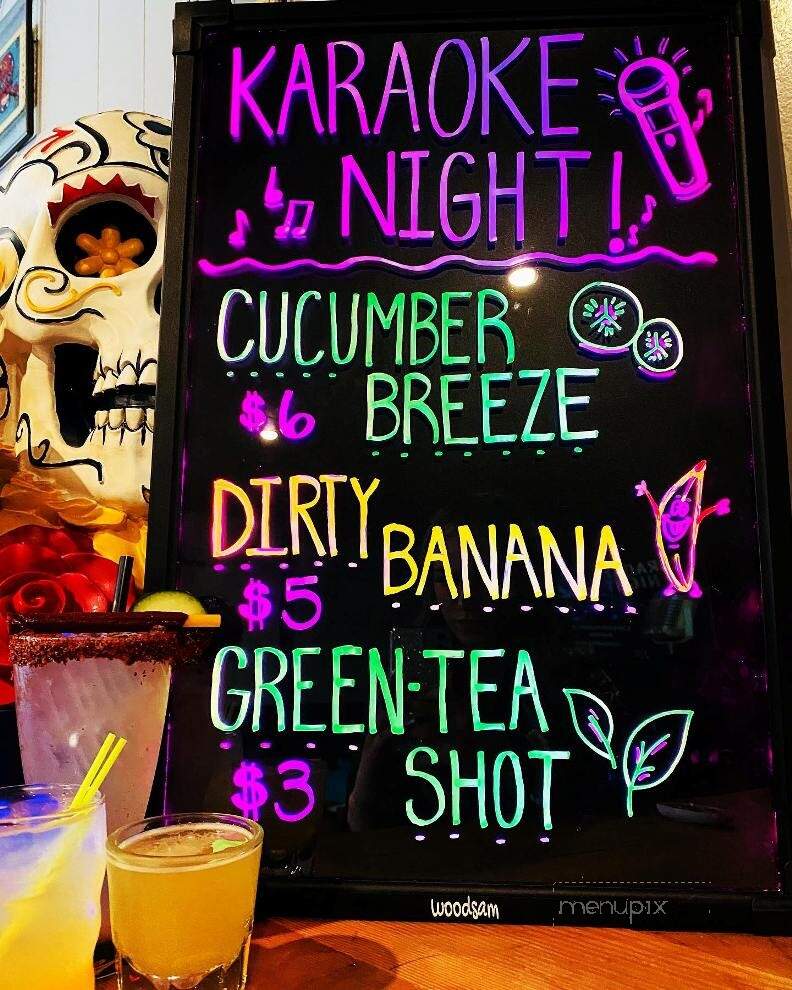 KARAOKE
NIGHT!
CUCUMBER
$6 BREEZE
DIRTY
BANANA
$5
GREEN-TEA
$3 SHOT
woodsam
menupix